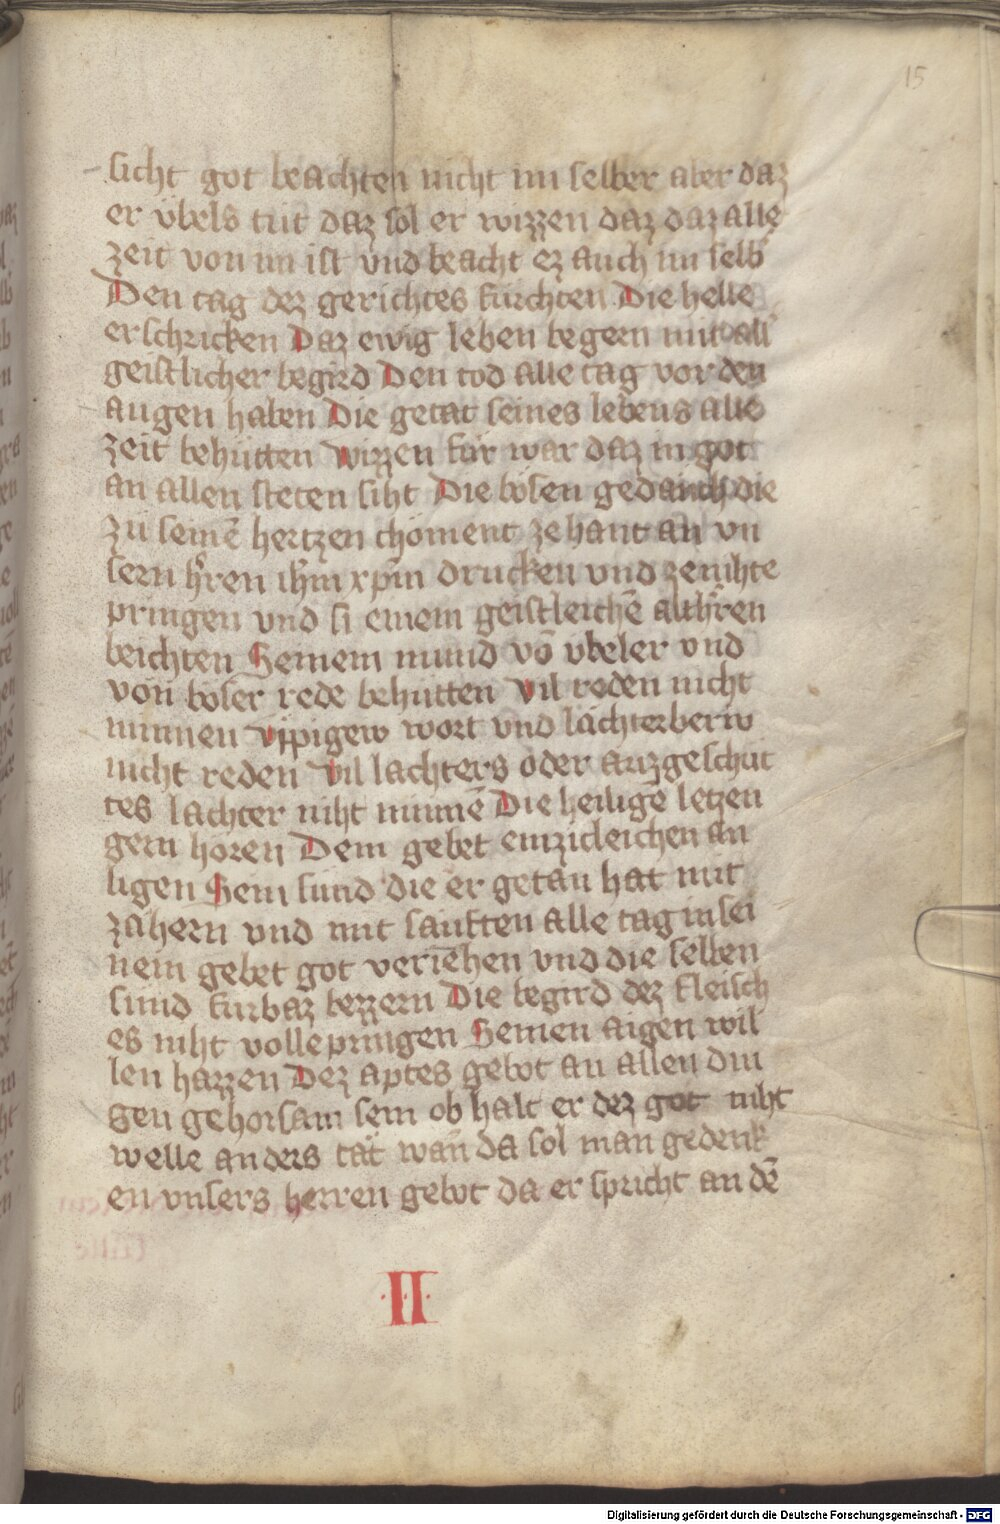 15
sicht got beachten nicht im selber aber daz
er vbels tut daz sol er wizzen daz daz alle
zeit von im ist vnd beacht ez auch im selb
Den tag dez gerichtes furchten Die helle
erschricken Daz ewig leben begern mit all
geistlicher begird Den tod alle tag vor den
augen haben Die getat seines lebens alle
zeit behutten wizzen fur war daz in got
an allen steten siht Die bösen gedanch die
zu seinē hertzen choment ze hant an vn
sern h̄ren ih̄m xp̄m drucken vnd ze niht
pringen vnd si einem geistleichē alth̄ren
beichten Seinem mund vō vbeler vnd
von böser rede behutten vil reden nicht
minnen vppigew wort vnd lächterberiw
nicht reden vil lachters oder auzgeschut
tes lachter niht minnē Die heiligē letzen
gern hören Dem gebet emzicleichen an
ligen Sein sund die er getan hat mit
zähern vnd mit säuften alle tag in sei
nem gebet got veriehen vnd die selben
sund furbaz bezzern Die begird dez fleisch
es niht volle pringen Seinen aigen wil
len hazzen Dez aptes gebot an allen din
gen gehorsam sein ob halt er dez got niht
welle anders tät wan̄ da sol man gedenk
en vnsers herren gebot da er spricht an dē
·II·
Digitalisierung gefördert durch die Deutsche Forschungsgemeinschaft - DFG